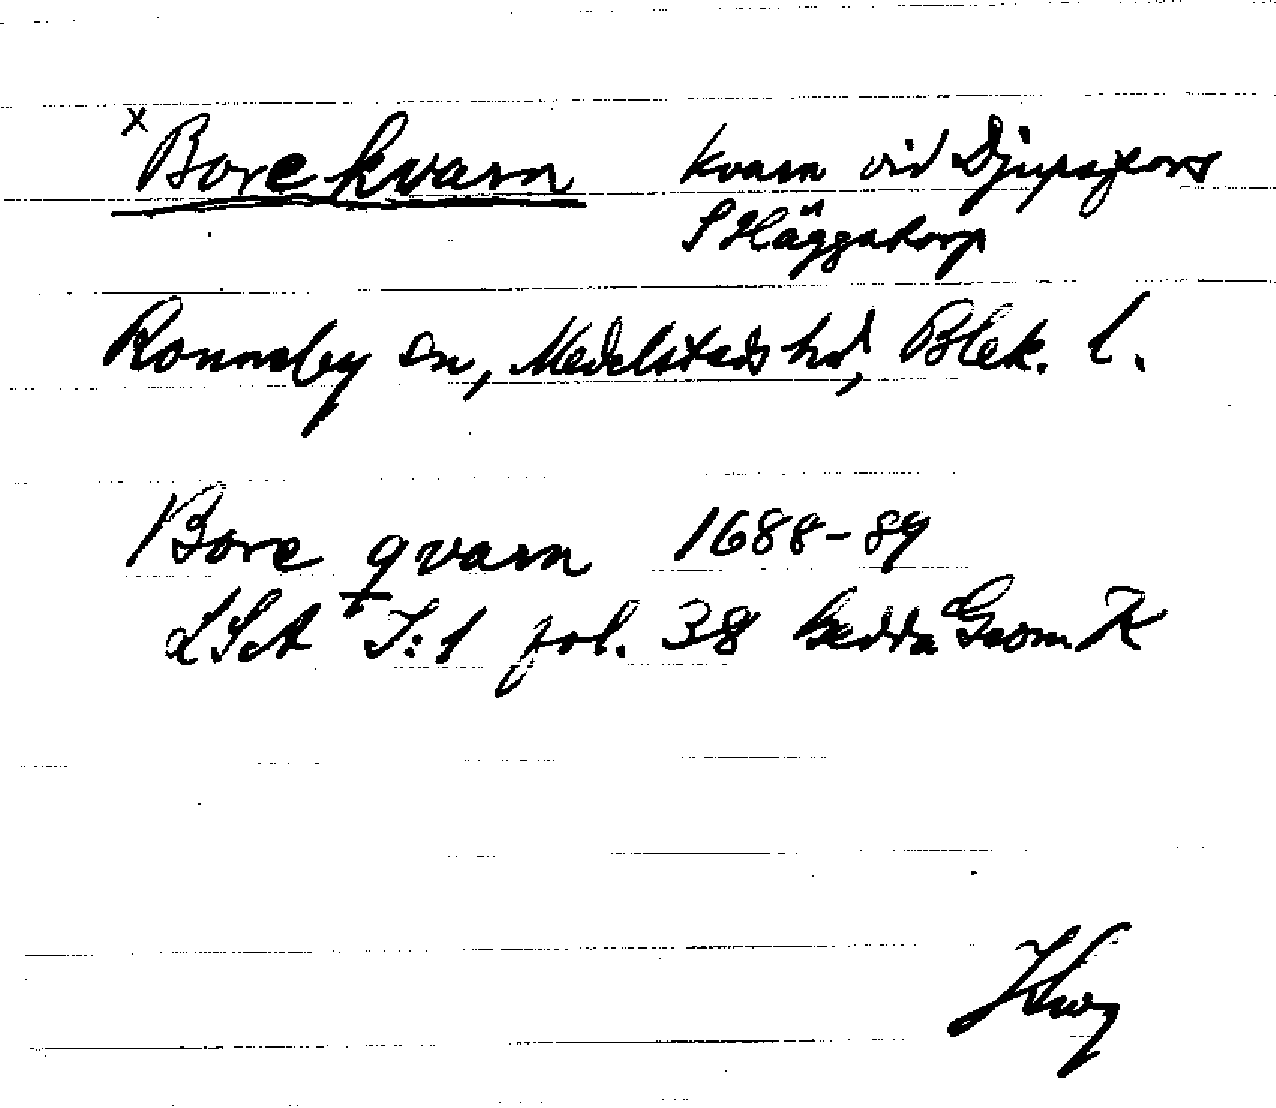 x Borekvarn kvarn vid Djupafors
S Häggatorp
Ronneby sn, Medelstads hd, Blek. l.
Bore qvarn 1688-89
LSA I:1 fol. 38 Geom